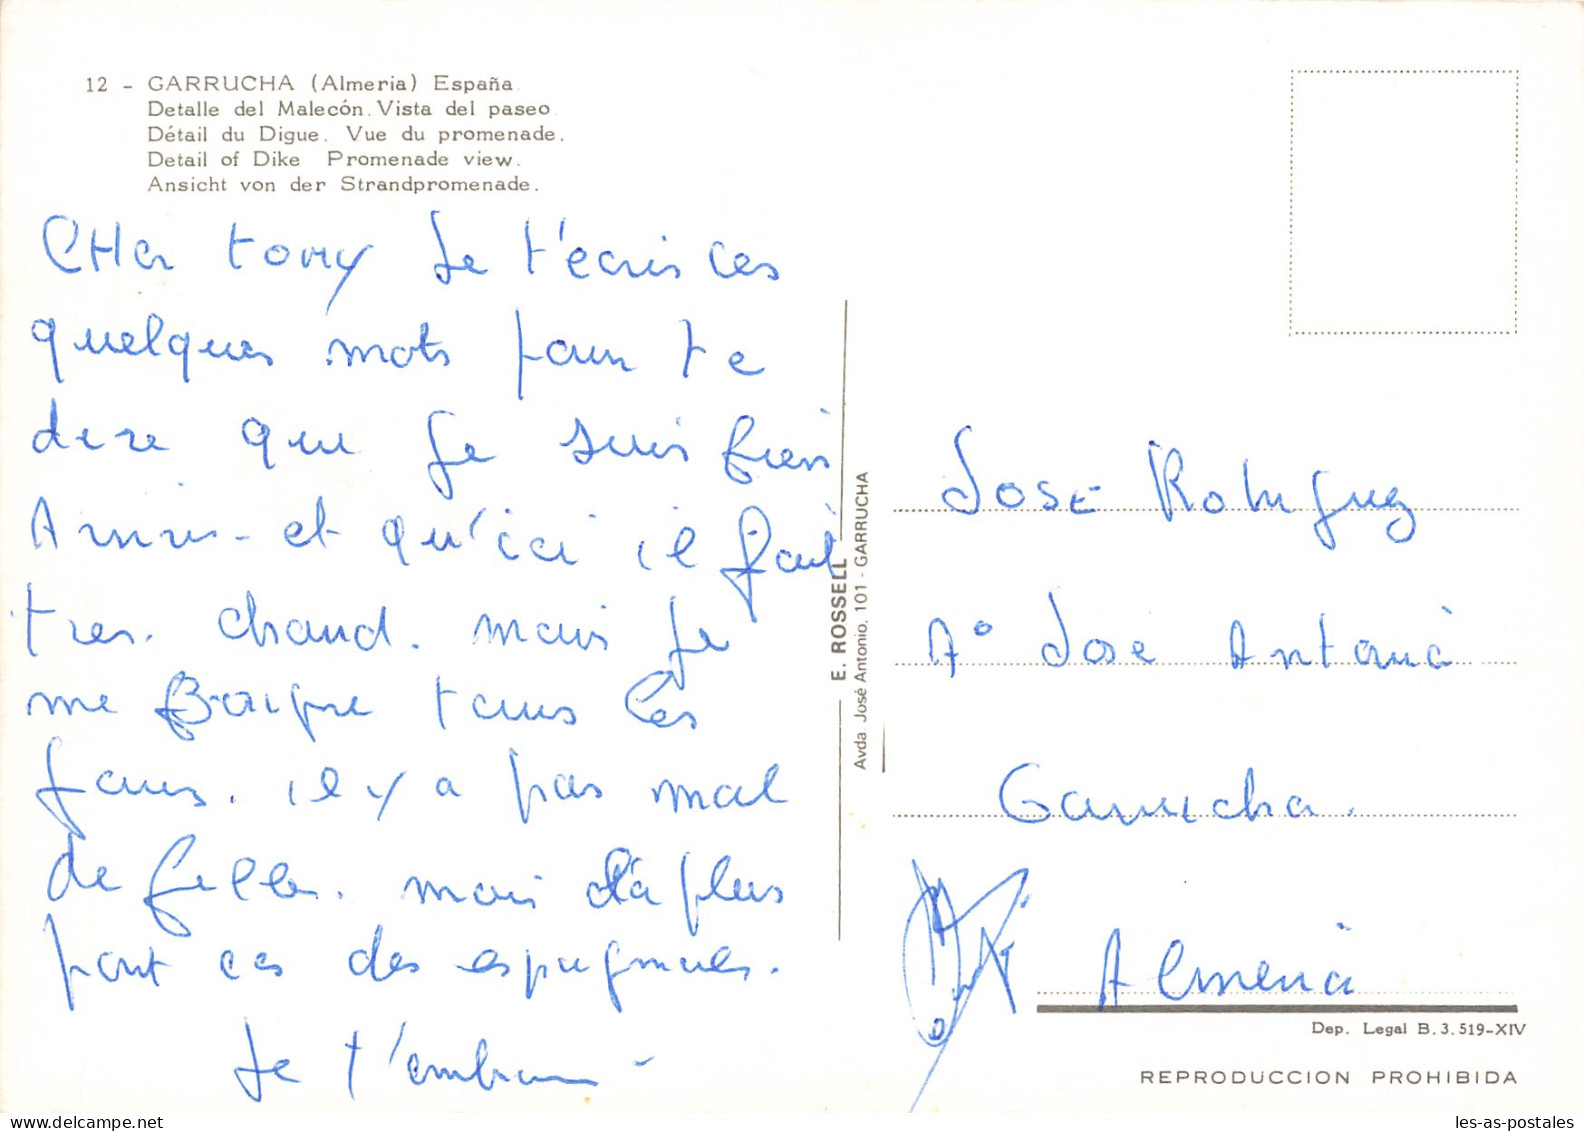 12 - GARRUCHA (Almeria) España.
Detalle del Malecón. Vista del paseo.
Détail du Digue. Vue du promenade.
Detail of Dike Promenade view.
Ansicht von der Strandpromenade.
CHer tony Je t'écris ces
quelques mots pour te
dire que je suis bien
et qu'ici il fait
tres. chaud. mais je
me Baigne tous les
jours. il y a pas mal
de filles. mais la plus
part ces des espagnoles.
Je t'embrasse
E. ROSSELL
Avda José Antonio, 101 - GARRUCHA
JOSE Rodriguez
Aº Jose Antonio
Garrucha.
Almeria
Dep. Legal B. 3.519-XIV
REPRODUCCION PROHIBIDA
les-as-postales